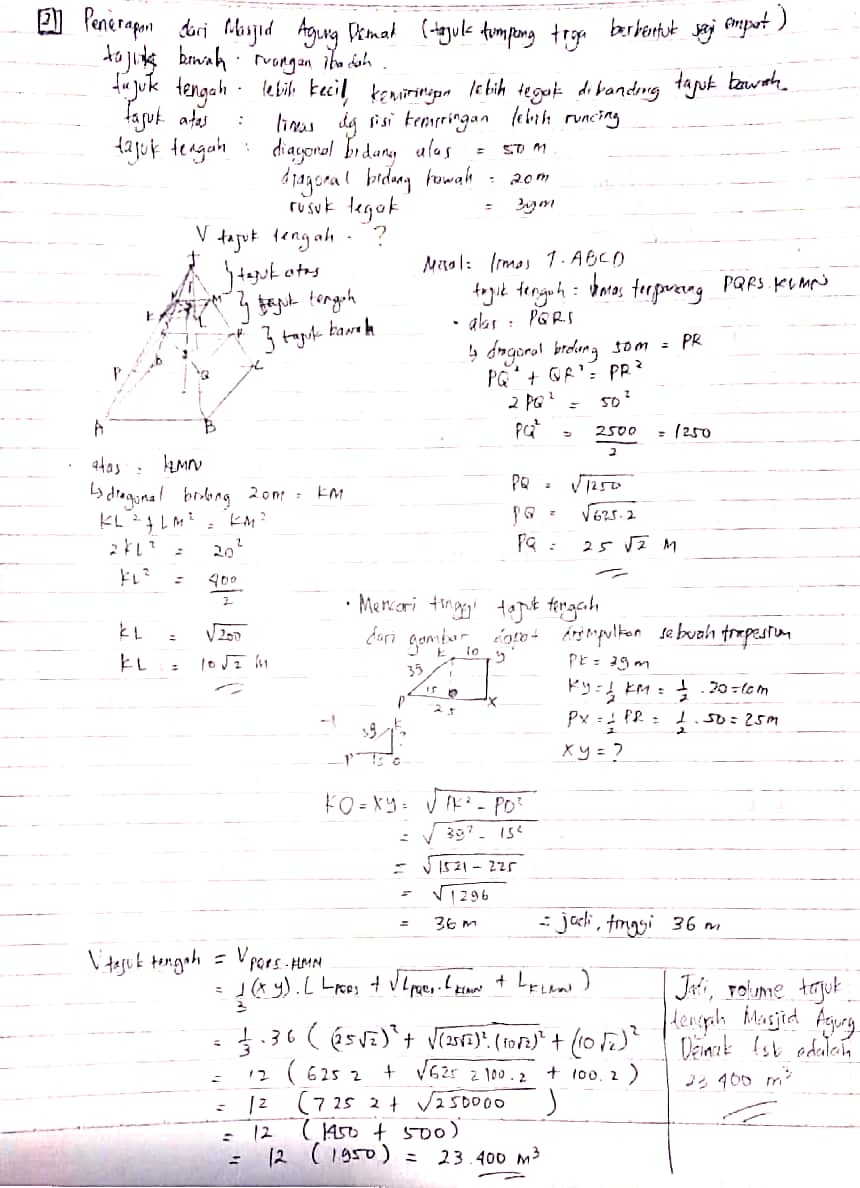 3] Penerapan dari Masjid Agung Demak (tajuk tumpang tiga berbentuk segi empat)
tajuk bawah : ruangan ibadah.
tajuk tengah : lebih kecil, kemiringan lebih tegak dibanding tajuk bawah
tajuk atas : limas dg sisi kemiringan lebih runcing
tajuk tengah : diagonal bidang alas = 50 m
diagonal bidang = 20m
rusuk tegak = 39m
V tajuk tengah = ?
T
} tajuk atas
K M
} tajuk tengah
L
R
} tajuk bawah
P D Q C
A B
Misal : limas T.ABCD
tajuk tengah : limas terpancung PQRS.KLMN
• alas : PQRS
↳ diagonal bidang 50m = PR
PQ² + QR² = PR²
2 PQ² = 50²
PQ² = 2500/2 = 1250
PQ = √1250
PQ = √625.2
PQ = 25 √2 M
• atas : KLMN
↳ diagonal bidang 20m = KM
KL² + LM² = KM²
2KL² = 20²
KL² = 400/2
KL = √200
KL = 10√2 m
• Mencari tinggi tajuk tengah
dari gambar dapat disimpulkan sebuah trapesium
K 10 Y
39
P 15 O X
25
PK = 39 m
KY = 1/2 KM = 1/2 . 20 = 10m
PX = 1/2 PR = 1/2 . 50 = 25m
XY = ?
39 K ?
P 15 O
KO = XY = √PK² - PO²
= √39² - 15²
= √1521 - 225
= √1296
= 36 m = jadi, tinggi 36 m
V tajuk tengah = V PQRS.KLMN
= 1/3 (XY) . ( L PQRS + √L PQRS . L KLMN + L KLMN )
= 1/3 . 36 ( (25√2)² + √(25√2)² . (10√2)² + (10√2)²
= 12 ( 625 2 + √625 2 100.2 + 100.2 )
= 12 ( 725 2 + √250000 )
= 12 ( 1450 + 500 )
= 12 ( 1950 ) = 23.400 M³
Jadi, volume tajuk
tengah Masjid Agung
Demak tsb adalah
23 400 m³